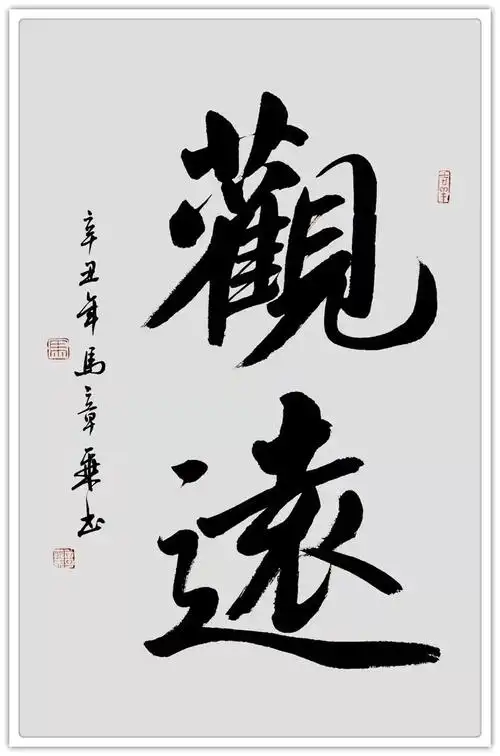 觀遠
辛丑年馬章乘书